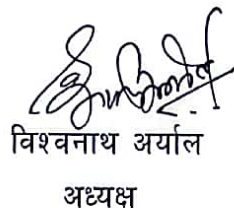 विश्वनाथ अर्याल
अध्यक्ष